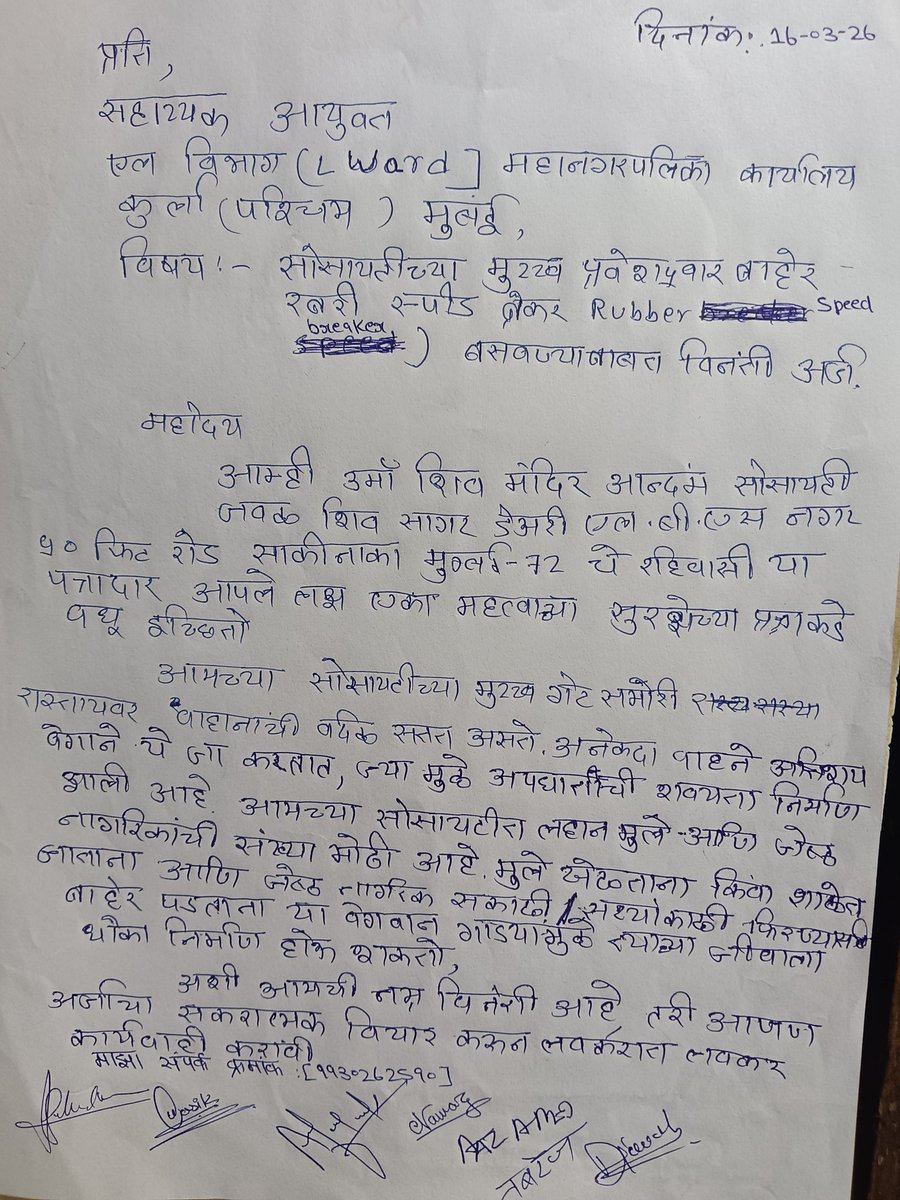 दिनांक:. 16-03-26
प्रति,
सहाय्यक आयुक्त
एल विभाग (L Ward] महानगरपलिका कार्यालय
कुर्ला (पश्चिम) मुंबई,
विषय :- सोसायटीच्या मुख्य प्रवेशद्वार बाहेर
रबरी स्पीड ब्रेकर Rubber Speed
breaker ) बसवण्याबाबत विनंती अर्ज.
महोदय
आम्ही उमाँ शिव मंदिर आन्दमं सोसायटी
जवळ शिव सागर डेअरी एल.बी.एस नगर
९० फिट रोड साकीनाका मुम्बई-72 चे रहिवासी या
पत्रादार आपले लक्ष एका महत्वाच्या सुरक्षेच्या प्रश्नाकडे
वधू इच्छितो
आमच्या सोसायटीच्या मुख्य गेट समोरी
रास्तायवर वाहानांची वर्दळ सतत असते. अनेकदा वाहने अतिशय
वेगाने ये जा करतात, ज्या मुळे अपघाताची शक्यता निर्माण
झाली आहे. आमच्या सोसायटीत लहान मुले - आणि जेष्ठ
नागरिकांची संख्या मोठी आहे. मुले खेळताना किंवा शाळेत
जाताना आणि जेष्ठ नागरिक सकाळी संध्याकाळी फिरण्यासाठी
बाहेर पडताना या वेगवान गाडयामुळे त्याच्या जीवाला
धोका निर्माण होऊ शकतो,
अशी आमची नम्र विनंती आहे तरी आपण
अर्जाचा सकारात्मक विचार करून लवकरात लवकर
कार्यवाही करावी
माझा संपर्क क्रमांक : [9930262590]
Nawaz
तबरेज